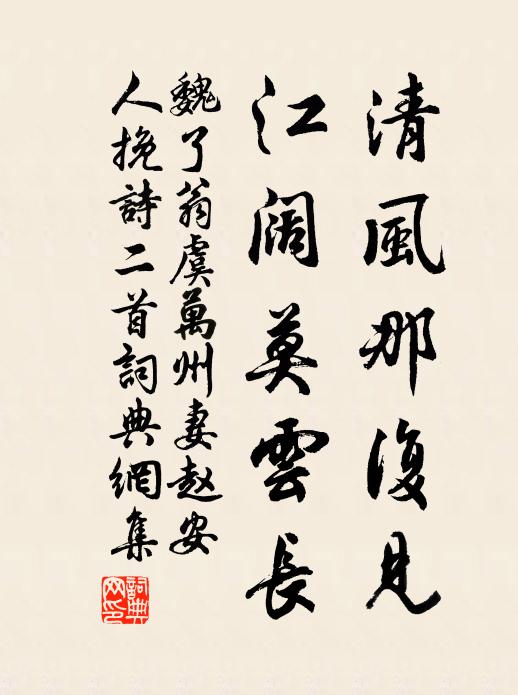 清風那復見
江阔莫雲長
魏了翁虞萬州妻赵安
人挽詩二首詞典網集
詞典網印